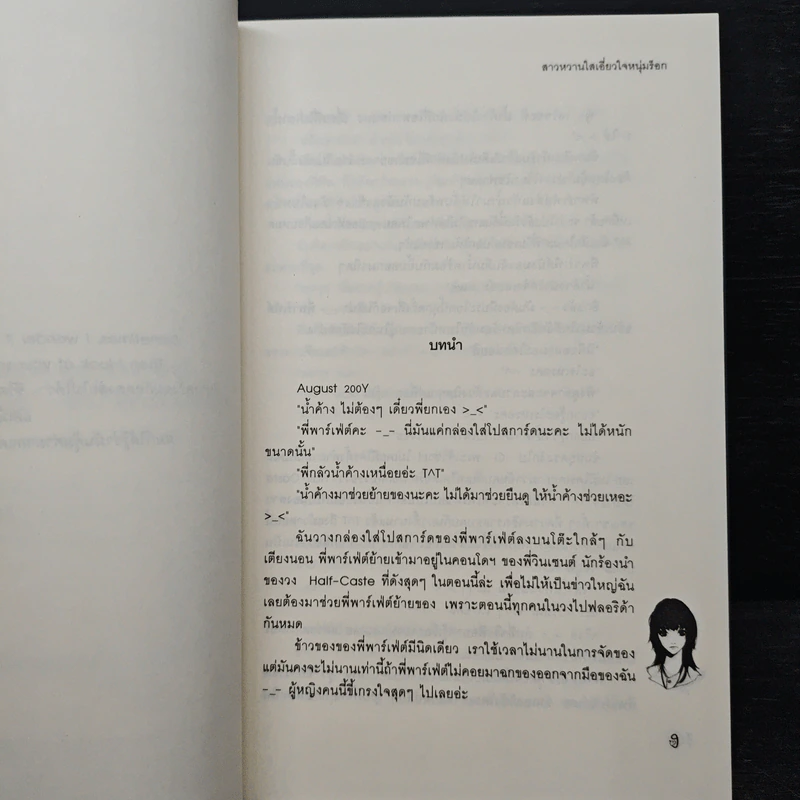 สาวหวานใสเฮี้ยวใจหนุ่มร็อก
บทนำ
August 200Y
"น้ำค้าง ไม่ต้องๆ เดี๋ยวพี่ยกเอง >_<"
"พี่พาร์เฟ่ต์คะ -_- นี่มันแค่กล่องใส่โปสการ์ดนะคะ ไม่ได้หนัก
ขนาดนั้น"
"พี่กลัวน้ำค้างเหนื่อยอ่ะ T^T"
"น้ำค้างมาช่วยย้ายของนะคะ ไม่ได้มาช่วยยืนดู ให้น้ำค้างช่วยเหอะ
>_<"
ฉันวางกล่องใส่โปสการ์ดของพี่พาร์เฟ่ต์ลงบนโต๊ะใกล้ๆ กับ
เตียงนอน พี่พาร์เฟ่ต์ย้ายเข้ามาอยู่ในคอนโดฯ ของพี่วินเซนต์ นักร้องนำ
ของวง Half-Caste ที่ดังสุดๆ ในตอนนี้ล่ะ เพื่อไม่ให้เป็นข่าวใหญ่ฉัน
เลยต้องมาช่วยพี่พาร์เฟ่ต์ย้ายของ เพราะตอนนี้ทุกคนในวงไปฟลอริด้า
กันหมด
ข้าวของของพี่พาร์เฟ่ต์มีนิดเดียว เราใช้เวลาไม่นานในการจัดของ
แต่มันคงจะไม่นานเท่านี้ถ้าพี่พาร์เฟ่ต์ไม่คอยมาฉกของออกจากมือของฉัน
-_- ผู้หญิงคนนี้ขี้เกรงใจสุดๆ ไปเลยอ่ะ